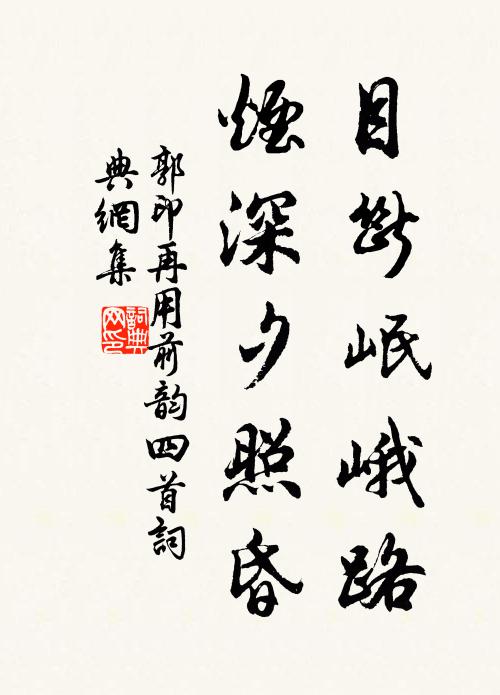 目斷岷峨路
煙深夕照昏
郭印再用前韵四首詞
典網集
詞典
网印